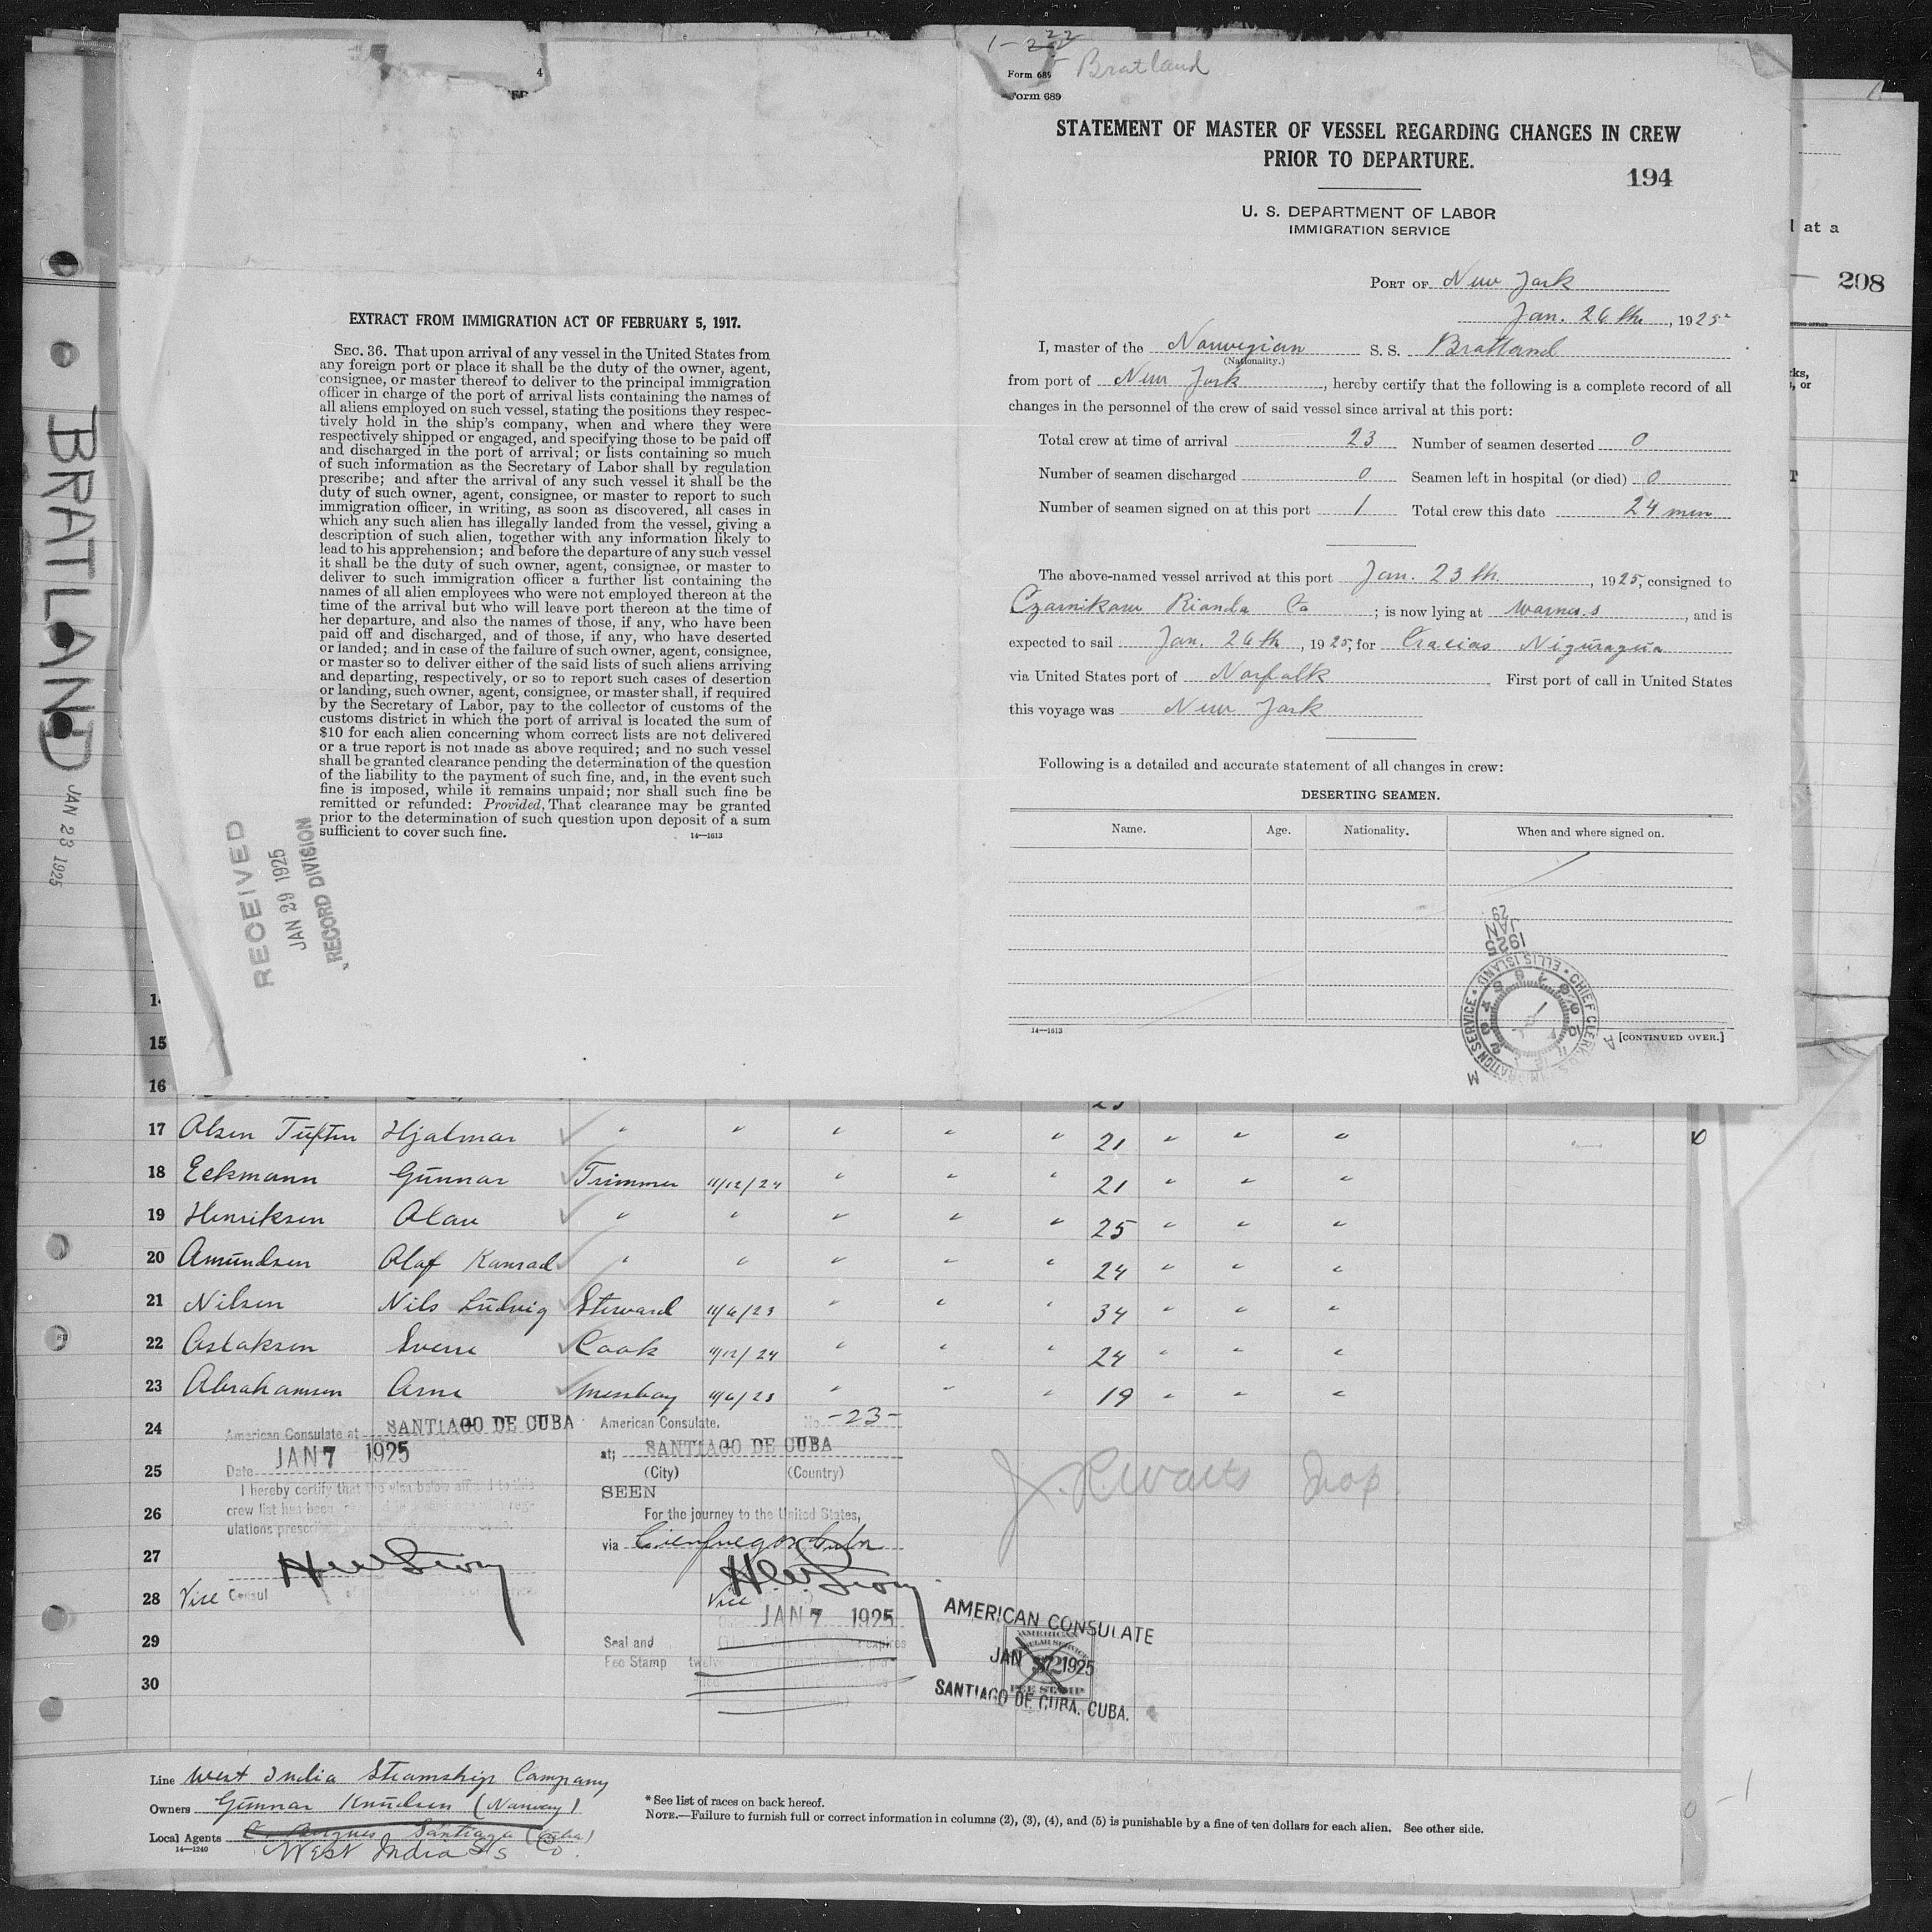 4
1-22
Bratland
Form 689
Form 689
STATEMENT OF MASTER OF VESSEL REGARDING CHANGES IN CREW
PRIOR TO DEPARTURE.
194
U. S. DEPARTMENT OF LABOR
IMMIGRATION SERVICE
PORT OF New York
Jan. 26th, 1925
I, master of the Norwegian S. S. Bratland
(Nationality.)
from port of New York, hereby certify that the following is a complete record of all
changes in the personnel of the crew of said vessel since arrival at this port:
Total crew at time of arrival 23 Number of seamen deserted 0
Number of seamen discharged 0 Seamen left in hospital (or died) 0
Number of seamen signed on at this port 1 Total crew this date 24 men
The above-named vessel arrived at this port Jan. 23th, 1925, consigned to
Czarnikow Rionda Co; is now lying at, and is
expected to sail Jan. 26th, 1925, for Gracias Niguragua
via United States port of Norfolk. First port of call in United States
this voyage was New York
Following is a detailed and accurate statement of all changes in crew:
DESERTING SEAMEN.
Name. Age. Nationality. When and where signed on.
1925 JAN 29
CHIEF CLERK U.S. IMMIGRATION SERVICE • ELLIS ISLAND •
14—1613
[CONTINUED OVER.]
EXTRACT FROM IMMIGRATION ACT OF FEBRUARY 5, 1917.
SEC. 36. That upon arrival of any vessel in the United States from
any foreign port or place it shall be the duty of the owner, agent,
consignee, or master thereof to deliver to the principal immigration
officer in charge of the port of arrival lists containing the names of
all aliens employed on such vessel, stating the positions they respec-
tively hold in the ship's company, when and where they were
respectively shipped or engaged, and specifying those to be paid off
and discharged in the port of arrival; or lists containing so much
of such information as the Secretary of Labor shall by regulation
prescribe; and after the arrival of any such vessel it shall be the
duty of such owner, agent, consignee, or master to report to such
immigration officer, in writing, as soon as discovered, all cases in
which any such alien has illegally landed from the vessel, giving a
description of such alien, together with any information likely to
lead to his apprehension; and before the departure of any such vessel
it shall be the duty of such owner, agent, consignee, or master to
deliver to such immigration officer a further list containing the
names of all alien employees who were not employed thereon at the
time of the arrival but who will leave port thereon at the time of
her departure, and also the names of those, if any, who have been
paid off and discharged, and of those, if any, who have deserted
or landed; and in case of the failure of such owner, agent, consignee,
or master so to deliver either of the said lists of such aliens arriving
and departing, respectively, or so to report such cases of desertion
or landing, such owner, agent, consignee, or master shall, if required
by the Secretary of Labor, pay to the collector of customs of the
customs district in which the port of arrival is located the sum of
$10 for each alien concerning whom correct lists are not delivered
or a true report is not made as above required; and no such vessel
shall be granted clearance pending the determination of the question
of the liability to the payment of such fine, and, in the event such
fine is imposed, while it remains unpaid; nor shall such fine be
remitted or refunded: Provided, That clearance may be granted
prior to the determination of such question upon deposit of a sum
sufficient to cover such fine.
14—1613
RECEIVED
JAN 29 1925
RECORD DIVISION
BRATLAND
JAN 23 1925
at a
208
15
16
17 Olsen Tuften Hjalmar " " " " " 21 " " "
18 Eckmann Gunnar Trimmer 11/12/24 " " " 21 " " "
19 Henriksen Olav " " " " " 25 " " "
20 Amundsen Olaf Konrad " " " " " 24 " " "
21 Nilsen Nils Ludvig Steward 11/6/23 " " " 34 " " "
22 Aslaksen Sverre Cook 11/12/24 " " " 24 " " "
23 Abrahamsen Arne Messboy 11/6/23 " " " 19 " " "
24
25
26
27
28
29
30
American Consulate at SANTIAGO DE CUBA
Date JAN 7 1925
I hereby certify that the visa below affixed to this
crew list has been
ulations
Vice Consul
American Consulate, No. -23-
at; SANTIAGO DE CUBA
(City) (Country)
SEEN
For the journey to the United States,
via Cienfuegos Cuba
Vice
JAN 7 1925
Seal and
Fee Stamp
expires
AMERICAN CONSULATE
JAN 7 1925
SANTIAGO DE CUBA, CUBA.
AMERICAN
FEE STAMP
Line West India Steamship Company
Owners Gunnar Knudsen (Norway)
Local Agents Santiago (Cuba)
West India S/S Co.
14—1240
* See list of races on back hereof.
NOTE.—Failure to furnish full or correct information in columns (2), (3), (4), and (5) is punishable by a fine of ten dollars for each alien. See other side.